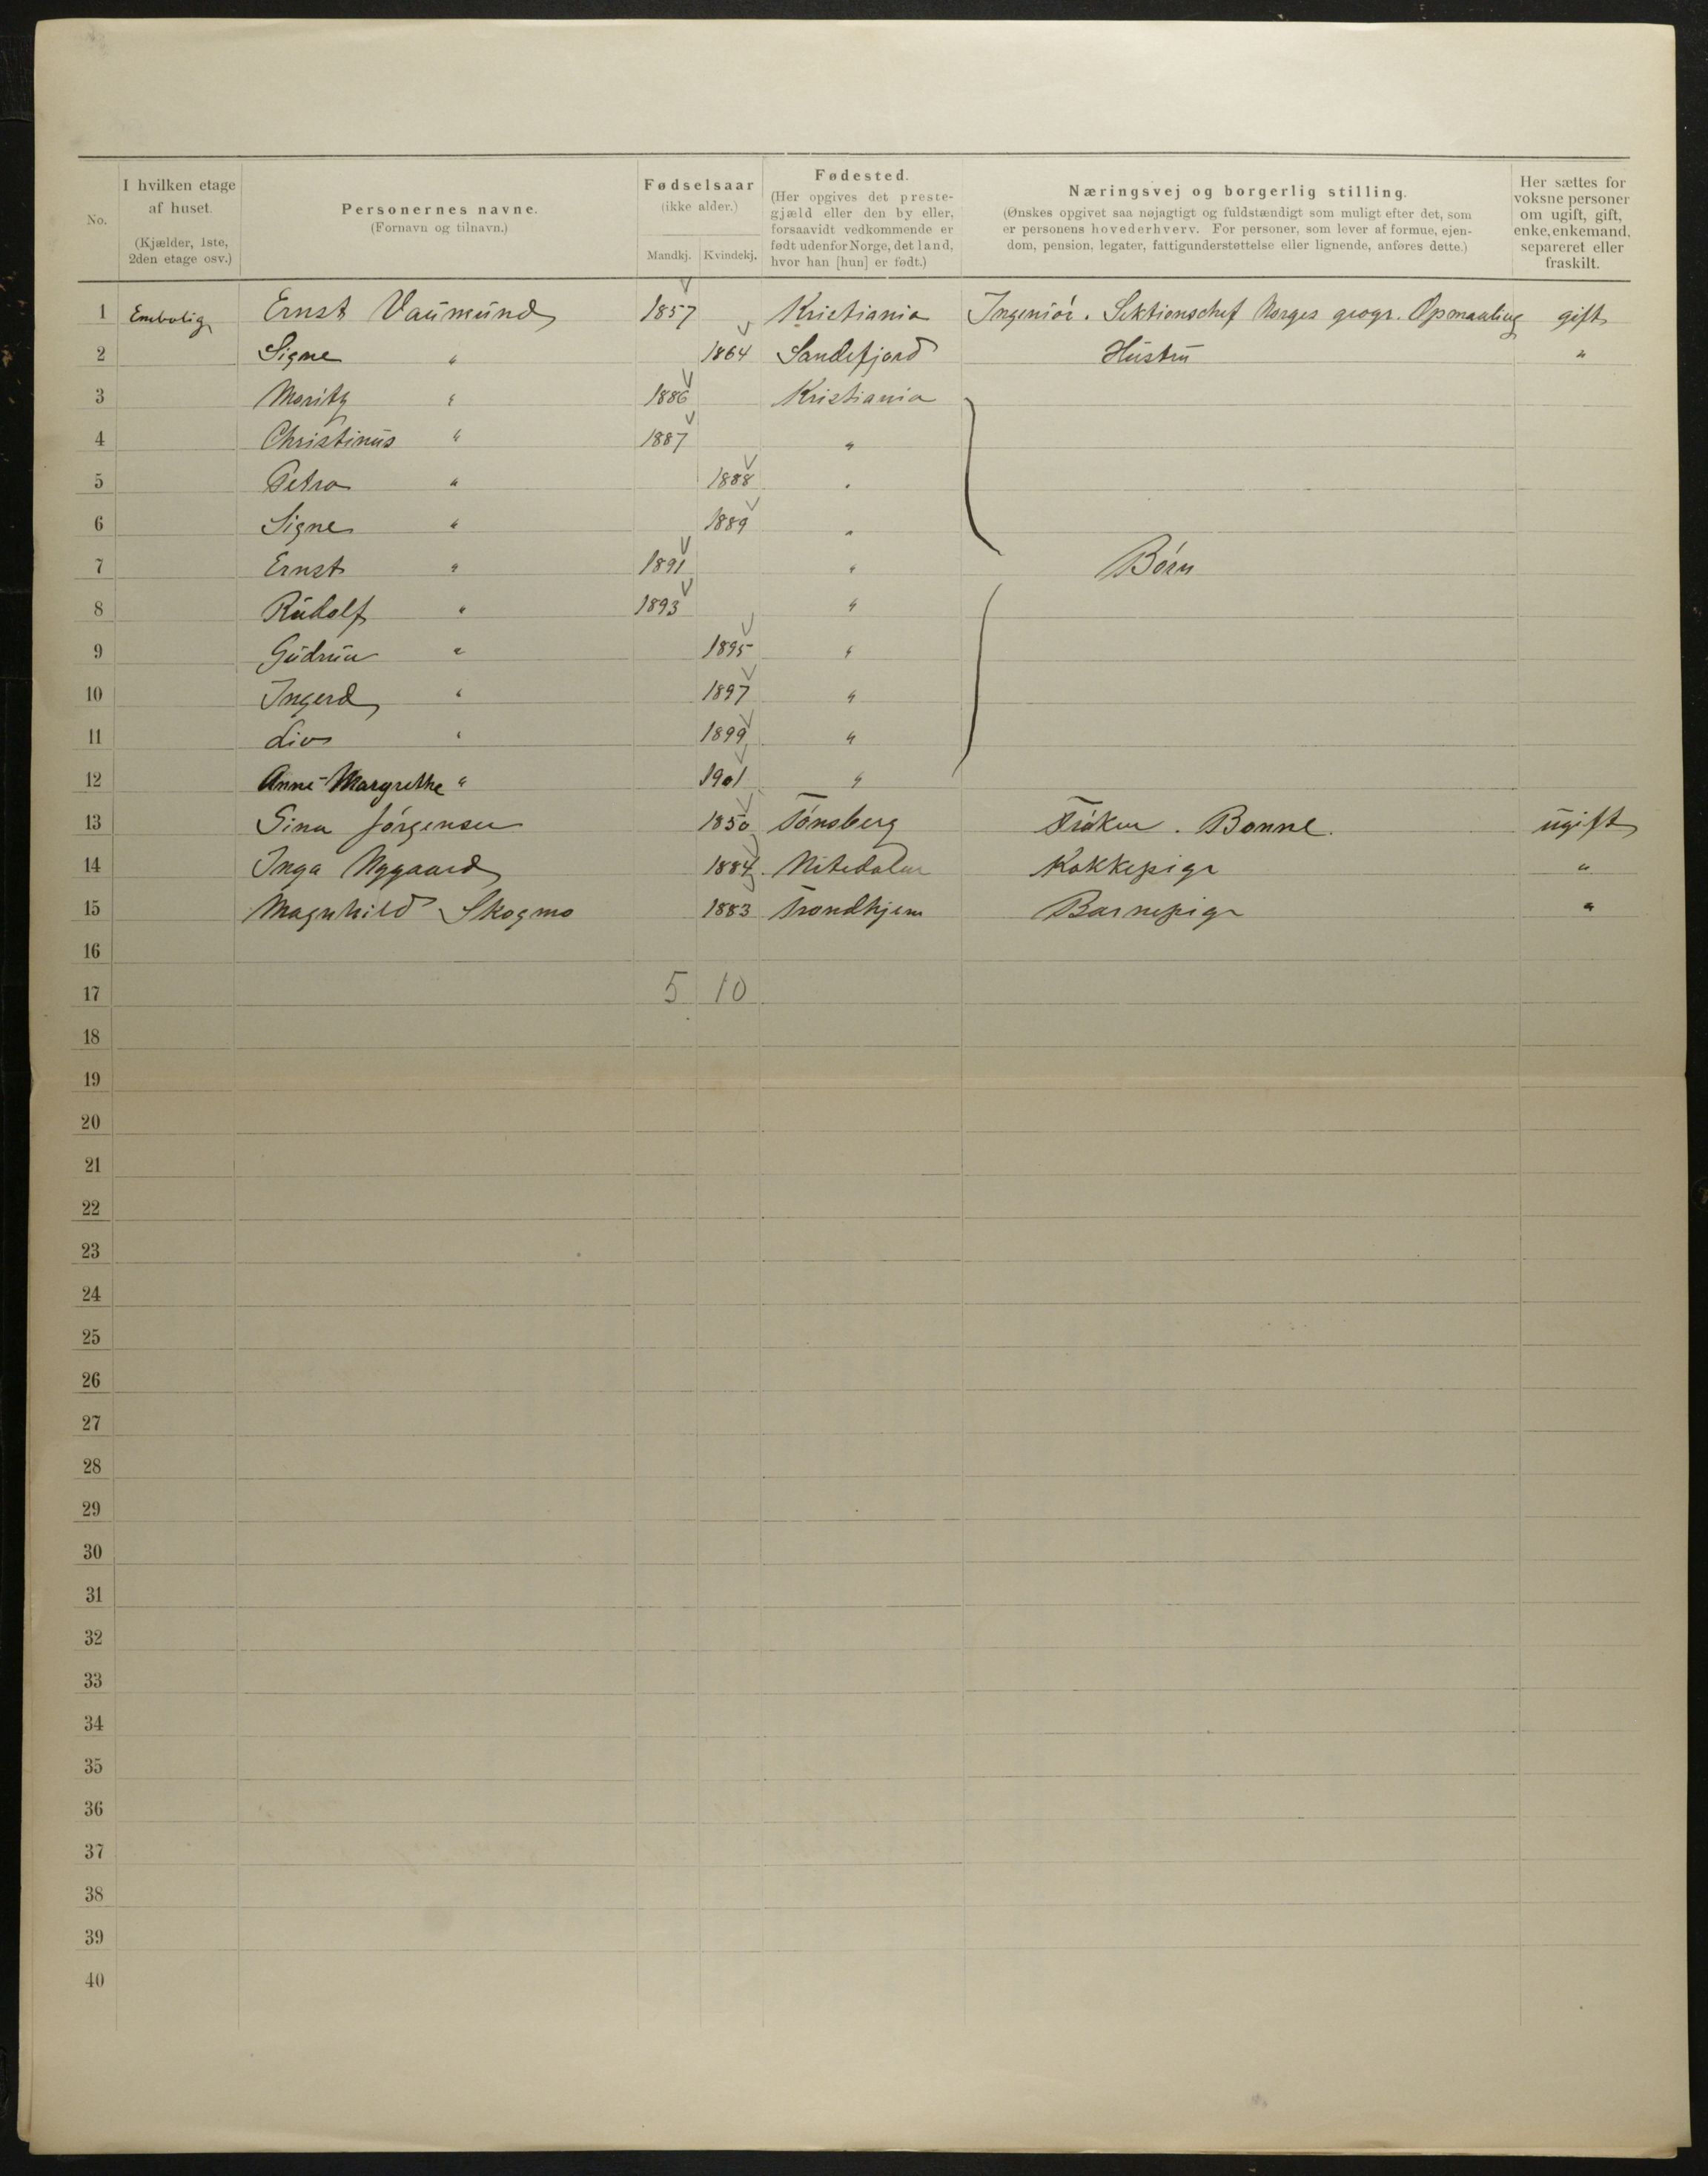 No.
I hvilken etage af huset. (Kjælder, 1ste, 2den etage osv.)
Personernes navne. (Fornavn og tilnavn.)
Fødselsaar (ikke alder.)
Mandkj. Kvindekj.
Fødested. (Her opgives det prestegjæld eller den by eller, forsaavidt vedkommende er født udenfor Norge, det land, hvor han [hun] er født.)
Næringsvej og borgerlig stilling. (Ønskes opgivet saa nøjagtigt og fuldstændigt som muligt efter det, som er personens hovederhverv. For personer, som lever af formue, ejendom, pension, legater, fattigunderstøttelse eller lignende, anføres dette.)
Her sættes for voksne personer om ugift, gift, enke, enkemand, separeret eller fraskilt.
1 Enebolig Ernst Vaumund 1857 Kristiania Ingeniör. Sektionschef Norges geogr. Opmaaling gift
2 Signe " 1864 Sandefjord Hustru "
3 Moritz " 1886 Kristiania
4 Christinus " 1887 "
5 Petra " 1888 "
6 Signe " 1889 "
7 Ernst " 1891 " Börn
8 Rudolf " 1893 "
9 Gudrun " 1895 "
10 Ingerd " 1897 "
11 Liv " 1899 "
12 Anne-Margrethe " 1901 "
13 Sina Jörgensen 1850 Tönsberg Fröken. Bonne. ugift
14 Inga Nygaard 1884 Nitedalen Kokkepige "
15 Magnhild Skogmo 1883 Trondhjem Barnepige "
16
17 5 10
18
19
20
21
22
23
24
25
26
27
28
29
30
31
32
33
34
35
36
37
38
39
40